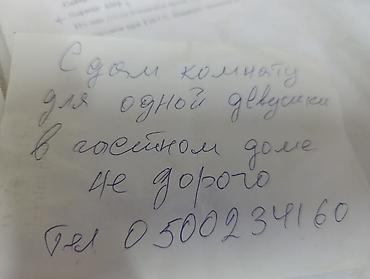 Сдам комнату
для одной девушки
в частном доме
не дорого
Тел 0500234160